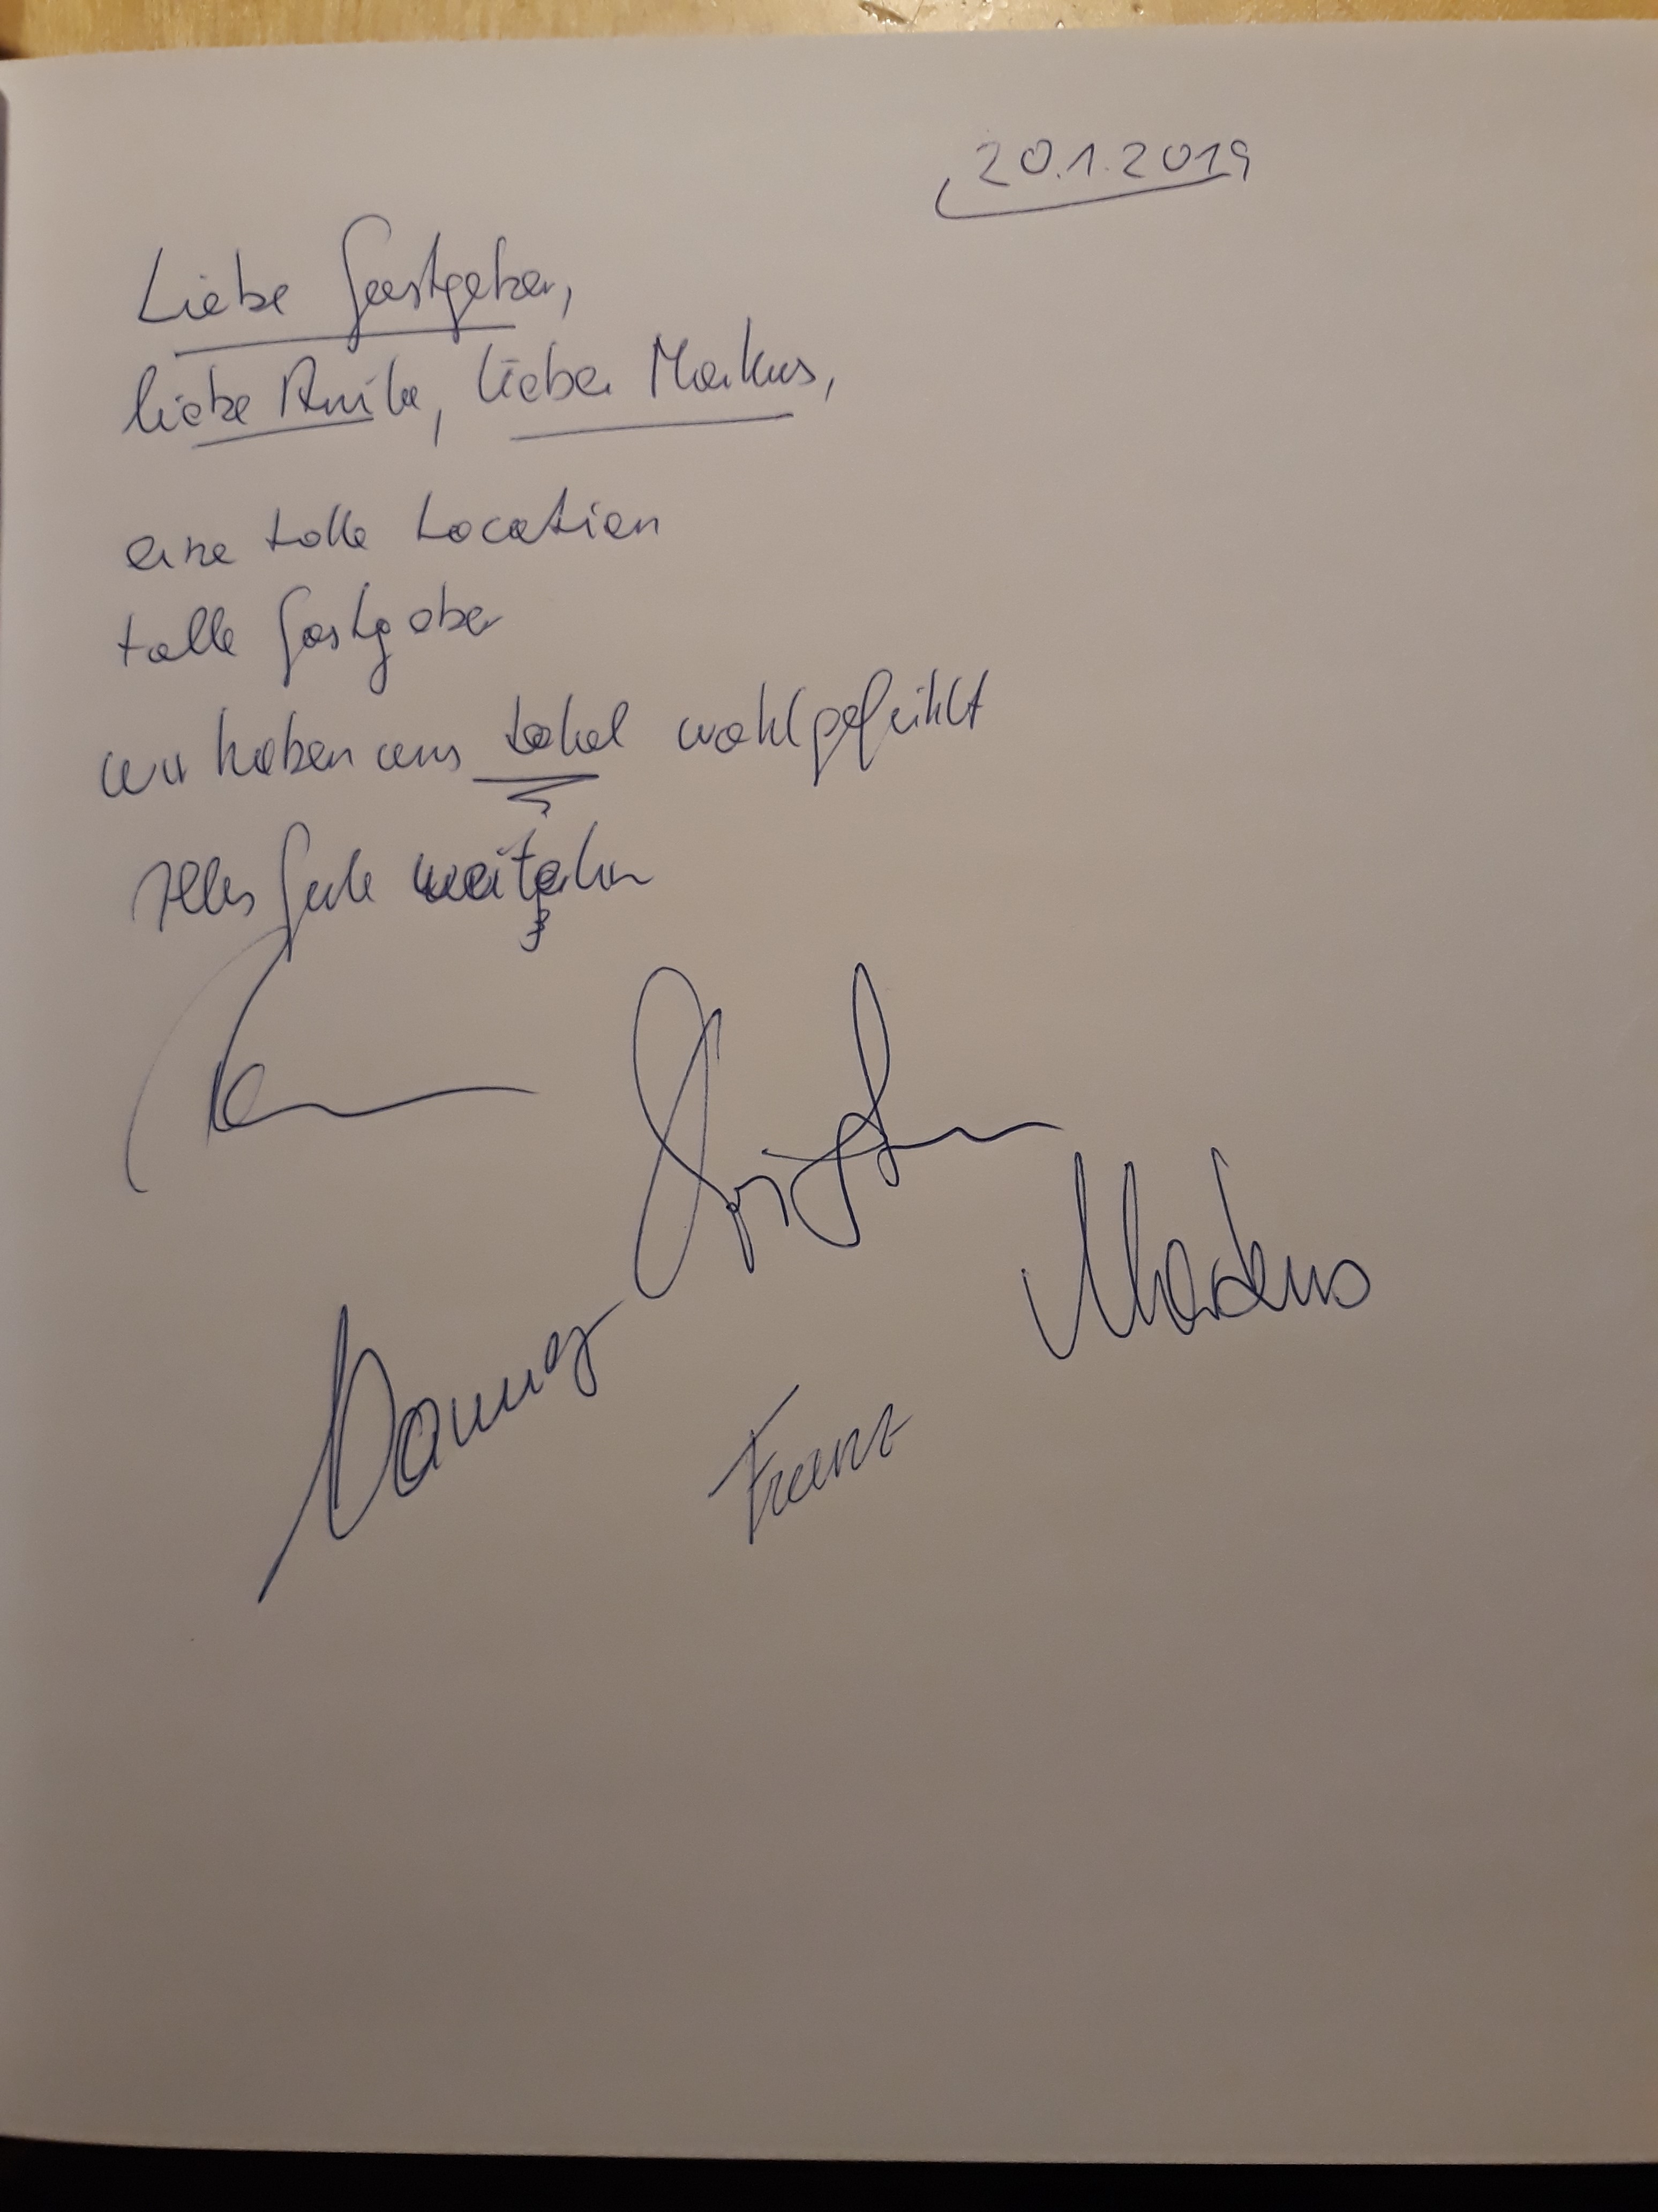 20.1.2019
Liebe Gastgeber,
liebe Anita, lieber Markus,
eine tolle Location
tolle Gastgeber
wir haben uns total wohlgefühlt
Alles Gute weiterhin
Franz